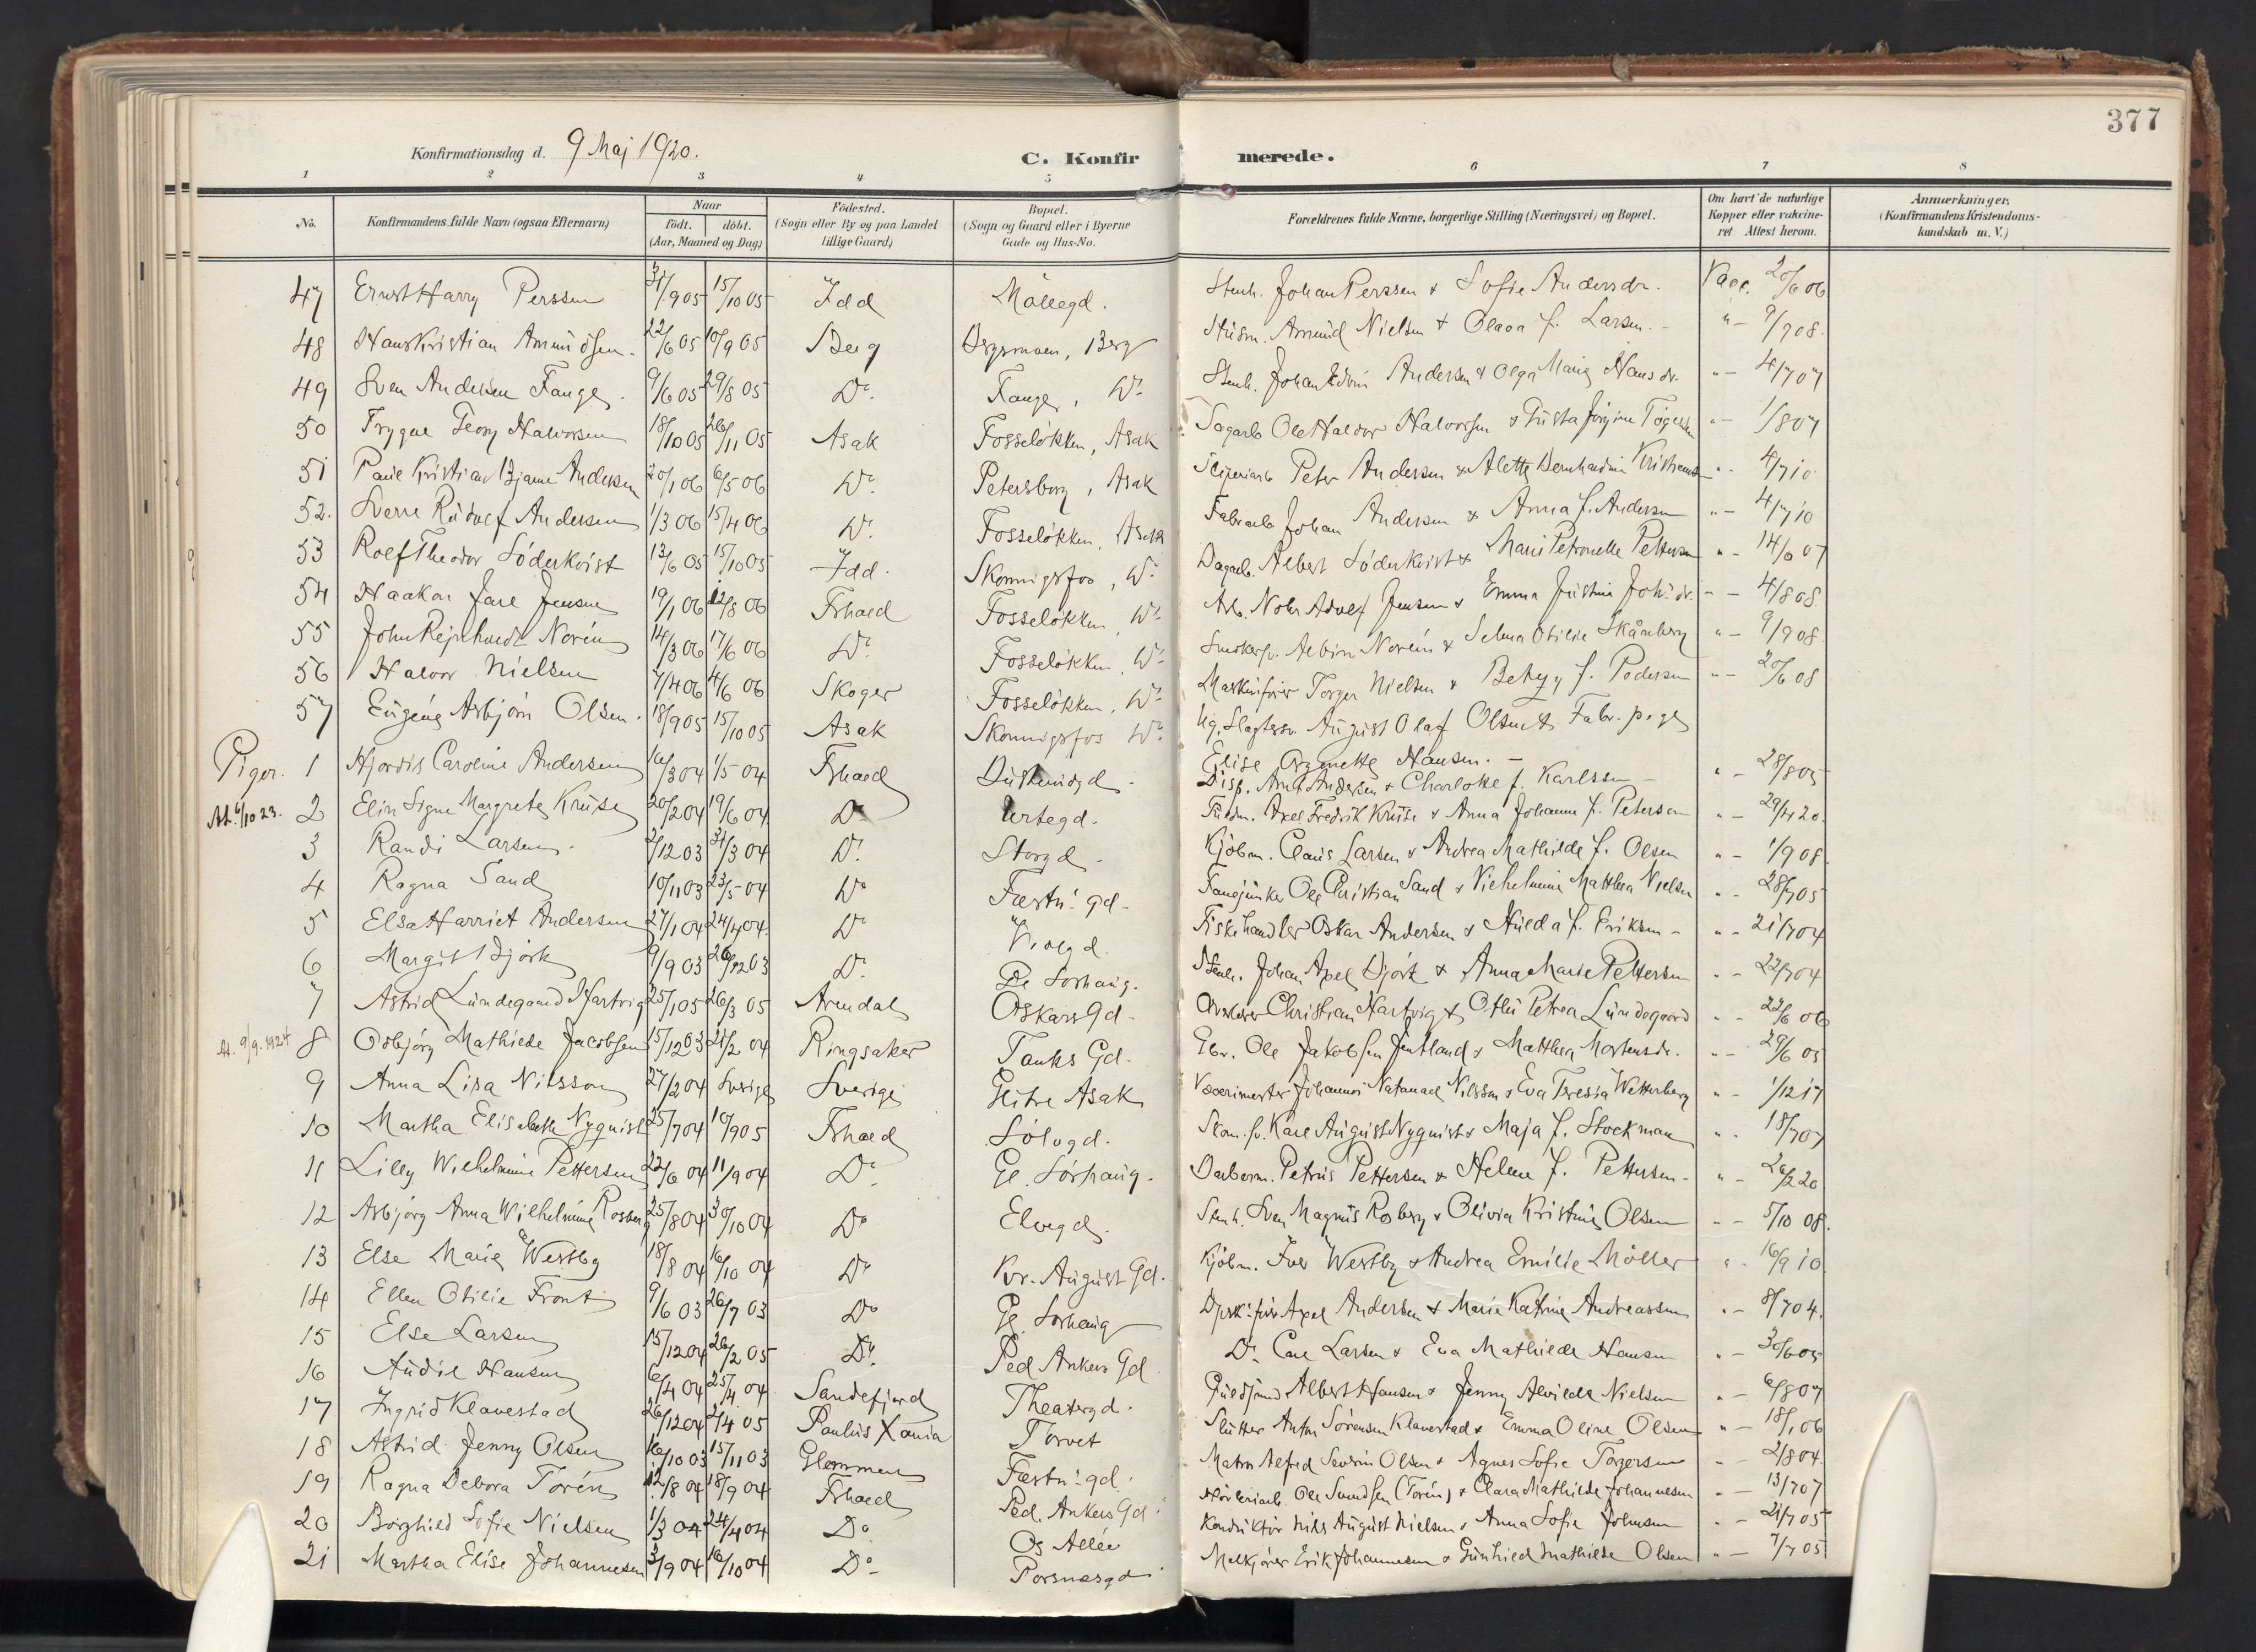 377
Konfirmationsdag d. 9 Maj 1920.
C. Konfirmerede.
1 2 3 4 5 6 7 8
No. Konfirmandens fulde Navn (ogsaa Efternavn) Naar født. døbt. (Aar, Maaned og Dag) Fødested. (Sogn eller By og paa Landet tillige Gaard) Bopæl. (Sogn og Gaard eller i Byerne Gade og Hus-No. Forældrenes fulde Navne, borgerlige Stilling (Næringsvei) og Bopæl. Om havt de naturlige Kopper eller vakcineret Attest herom. Anmærkninger. (Konfirmandens Kristendomskundskab m. V.)
47 Ernst Harry Perssen 15/10 05 Idd Möllegd. Stenh. Johan Perssen & Sofie Andersdr. Vacc. 20/6 06
48 Hans Kristian Amundsen 22/6 05 10/9 05 Berg Bergsmoen, Berg Amund Nielsen & Olava f. Larsen. " - 9/7 08.
49 Sven Andersen Fange 9/6 05 29/8 05 Do. Fange, Do. Stenh. Johan Edvin Andersen & Olga Marie Hansdr. " - 4/7 07
50 Trygve Georg Halvorsen 18/10 05 26/11 05 Asak Fosseløkken, Asak Sagarb. Ole Haldor Halvorsen & Gusta Jørgine " - 1/8 07
51 Paul Kristian Bjarne Andersen 20/1 06 6/5 06 Do. Petersborg, Asak Peter Andersen & Alette Bernhardine " - 4/7 10
52. Sverre Rudolf Andersen 1/3 06 15/4 06 Do. Fosseløkken, Asak Fabrarb Johan Andersen & Anna f. Andersen " - 4/7 10
53 Rolf Theodor Söderkvist 13/6 05 15/10 05 Idd. Skonnigsfos, Do. Dagarb. Albert Söderkvist & Marie Petronelle Pettersen " - 14/6 07
54 Haakon Jarl Jensen 19/1 06 12/8 06 Frhald Fosseløkken Do. Arb. Adolf Jensen & Emma Justine Johsdr. " - 4/8 08.
55 John Rejnhardt Norén 14/3 06 17/6 06 Do. Fosseløkken, Do. Albin Norén & Selma Otilie Skånberg " - 9/9 08.
56 Halvor Nielsen 7/4 06 4/6 06 Skoger Fosseløkken, Do. Maskinfører Torger Nielsen & Betzy f. Pedersen " - 20/6 08
57 Eugéne Asbjørn Olsen. 18/9 05 15/10 05 Asak Skonnigsfos Do. Ug. Slagtersv. August Olaf Olsen & Fabr.pige Elise Hansen. -
Piger. 1 Hjørdis Caroline Andersen 16/3 04 1/5 04 Frhald Disp. Andersen & Charlotte f. Karlssen - " - 28/8 05
At. 6/10 23. 2 Elin Signe Margrete Kruse 20/2 04 19/6 04 Do. Urtegd. Axel Fredrik Kruse & Anna Johanne f. Peterson " - 29/4 20.
3 Randi Larsen. 2/12 03 31/3 04 Do. Storgd. Kjøbm. Claus Larsen & Andrea Mathilde f. Olsen " - 1/9 08.
4 Ragna Sand 10/11 03 23/5 04 Do. Fæstn. gd. Fanejunker Ole Christian Sand & Vilhelmine Matthea Nielsen " - 28/7 05
5 Elsa Harriet Andersen 27/1 04 24/4 04. Do. Violgd. Fiskehandler Oskar Andersen & Hulda f. Eriksen - " - 21/7 04
6 Margit Björk 9/9 03 26/12 03 Do. Gl. Sørhaug. Stenh. Johan Axel Björk & Anna Marie Pettersen " - 22/7 04
7 Astrid Lundegaard Hartvig 25/1 05 26/3 05 Arendal Oskars Gd. Christian Hartvig & Petrea Lundegaard " - 22/6 06
At. 9/9.1924 8 Osbjørg Mathilde Jacobsen 15/12 03 21/2 04 Ringsaker Tanks Gd. Ole Jakobsen & Matthea Mortensdr. " - 29/6 05
9 Anna Lisa Nilsson 27/2 04 Sverige Sverige Asak Væverimester Johannes Natanael Nilsson & Eva Teresia Wetterberg " - 1/12 17
10 Martha Elisabeth Nyquist 25/7 04 10/9 05 Frhald Sølvgd. Skom.sv. Karl August Nyquist & Maja f. Stockman " - 18/7 07
11 Lilly Wilhelmine Pettersen 22/6 04 11/9 04 Do. Gl. Sørhaug. Petrus Pettersen & Helene f. Pettersen. " - 26/2 20
12 Asbjørg Anna Wilhelmine Rosberg 25/8 04 30/10 04 Do. Elvegd. Stenh. Sven Magnus Rosberg & Olivia Kristine Olsen " - 5/10 08.
13 Else Marie Westby 18/8 04 16/10 04 Do. Kr. August Gd. Kjøbm. Iver Westby & Andrea Emilie Möller " - 16/9 10
14 Ellen Otilie Front 9/6 03 26/7 03 Do. Gl. Sørhaug Axel Andersen & Marie Katrine Andreassen " - 8/7 04.
15 Else Larsen 15/12 04 26/2 05 Do. Ped Ankers Gd. Do. Carl Larsen & Eva Mathilde Hansen " - 30/6 05
16 Audil Hansen 6/4 04 25/4 04 Sandefjord Theatergd. Guldsmed Albert Hansen & Jenny Alvilde Nielsen " - 6/8 07
17 Ingrid Klavestad 26/12 04 2/4 05 Paulus Xania Torvet Slutter Anton Sørensen Klavestad & Emma Oline Olsen " - 18/1 06
18 Astrid Jenny Olsen 16/10 03 15/11 03 Glemmen Fæstn. gd. Matros Alfred Severin Olsen & Agnes Sofie Torgersen " - 2/8 04.
19 Ragna Debora Torén 12/8 04 18/9 04 Frhald Ped. Ankers Gd. Ole Svendsen (Torén) & Clara Mathilde Johannesen " - 13/7 07
20 Borghild Sofie Nielsen 1/3 04 24/4 04 Do. Os Allée Konduktør Nils August Nielsen & Anna Sofie Johnsen " - 21/7 05
21 Martha Elise Johannesen 3/9 04 16/10 04 Do. Porsnæsgd. Melkjører Erik Johannesen & Gunhild Mathilde Olsen " - 7/7 05